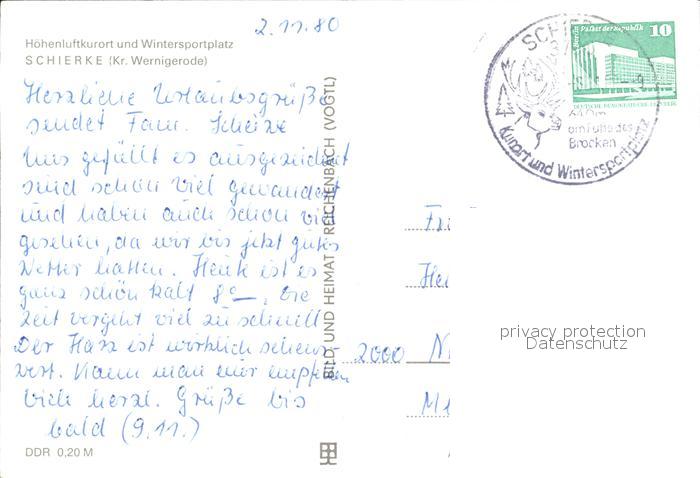 2.11.80
Höhenluftkurort und Wintersportplatz
SCHIERKE (Kr. Wernigerode)
Herzliche Urlaubsgrüße
sendet Fam.
Uns gefällt es ausgezeichnet
sind schon viel gewandert
und haben auch schon viel
gesehen, da wir bis jetzt gutes
Wetter hatten. Heute ist es
ganz schön kalt 8°–, die
Zeit vergeht viel zu schnell
Der Harz ist wirklich sehens-
wert. Kann man nur empfehlen
Viele herzl. Grüße bis
bald (9.11.)
DDR 0,20 M
BILD UND HEIMAT REICHENBACH (VOGTL)
SCHIERKE
am Fuße des
Brocken
Kurort und Wintersportplatz
Berlin Palast der Republik
10
DEUTSCHE DEMOKRATISCHE REPUBLIK
2000 N
privacy protection
Datenschutz